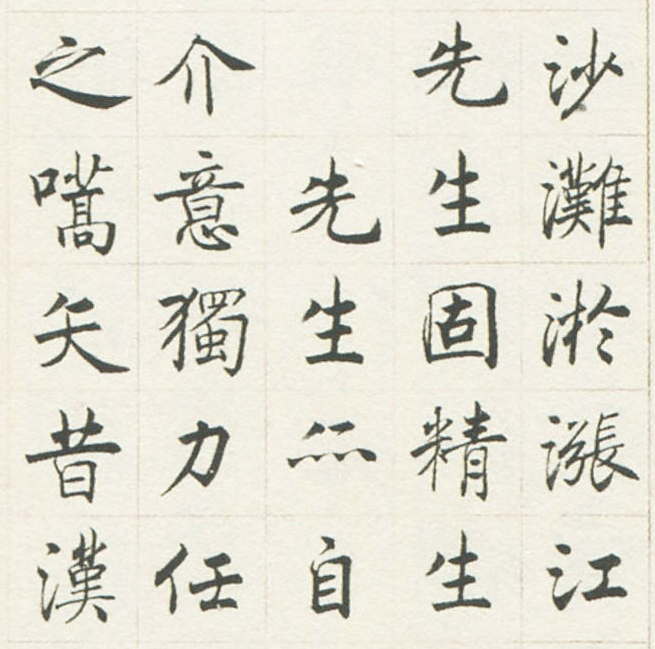 沙灘淤漲江
先生固精生
先生自
介意獨力任
之嚆矢昔漢